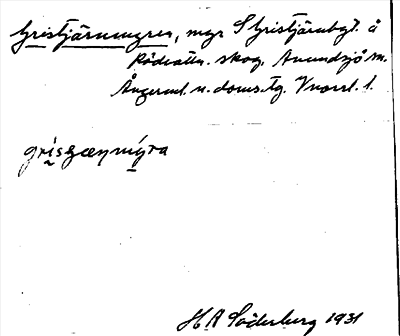 Gristjärnmyren, myr S Gristjärnbgt. å
Rödvattn. skog, Anundsjö sn.
Ångerml. n. doms.tg. Vnorrl. l.
griszæn mýra
H A Söderberg 1931